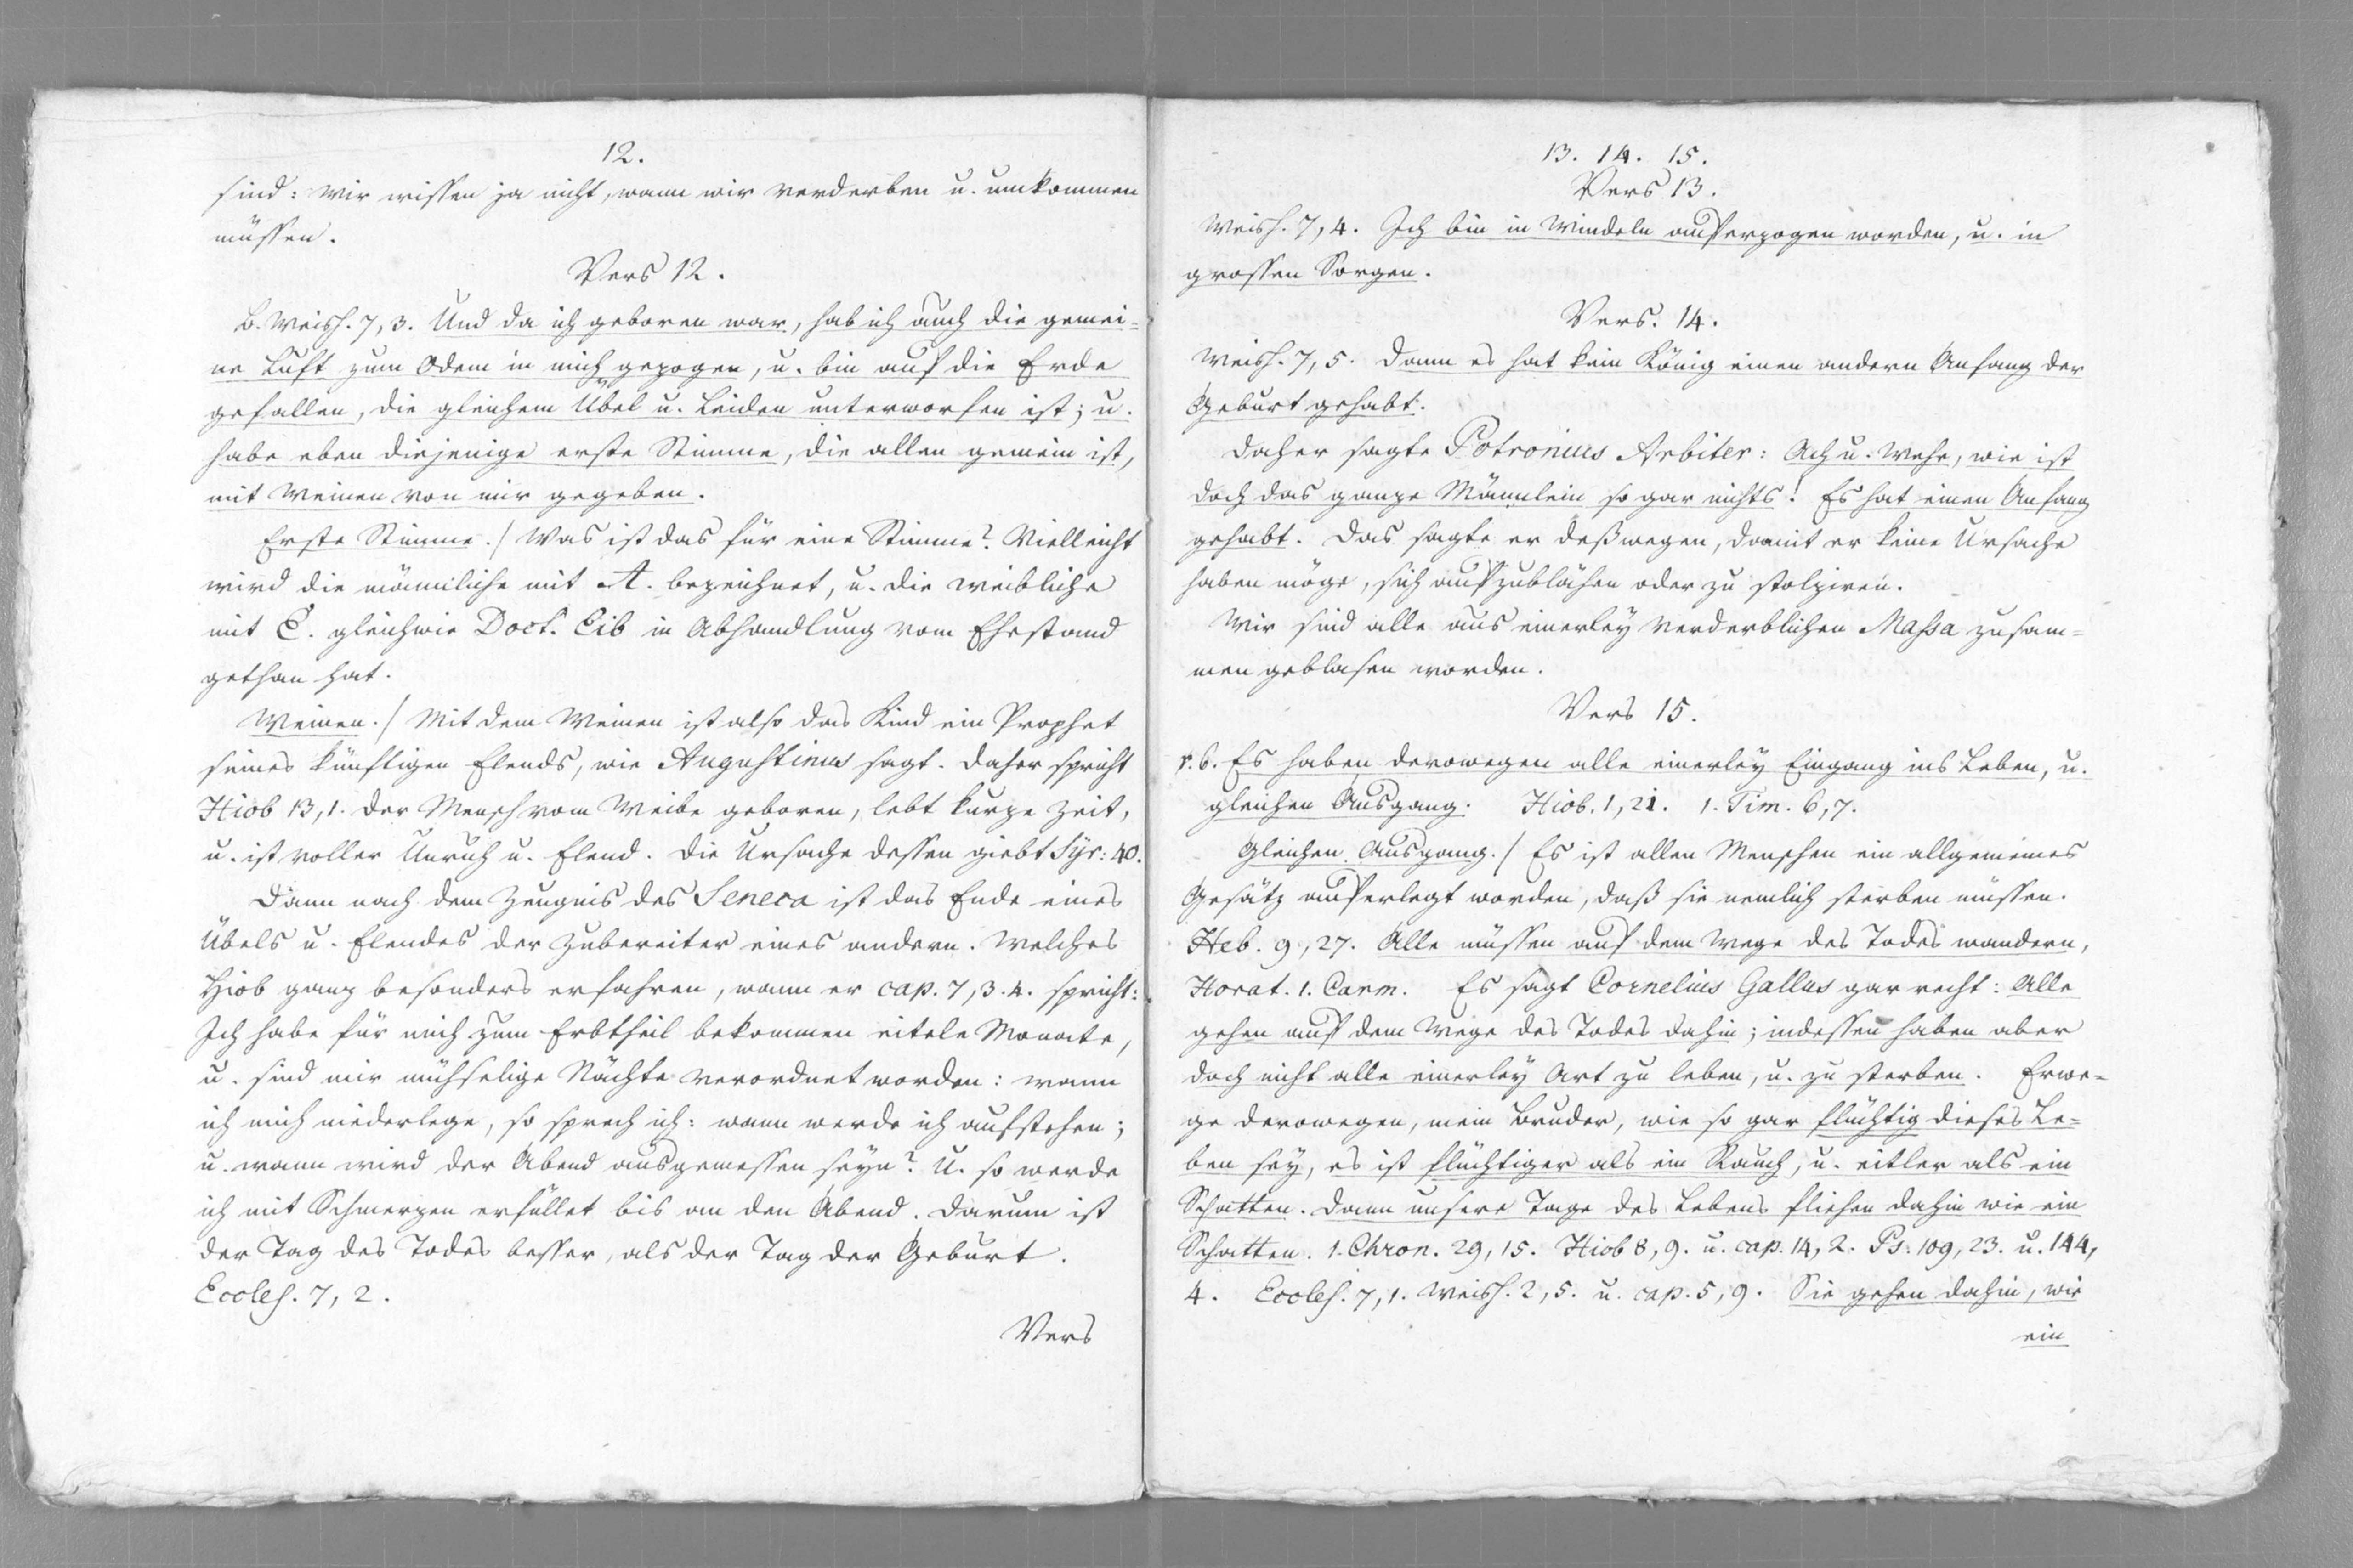 12.
sind: wir wissen ja nicht, wann wir verderben u. umkommen
müssen.
Vers 12.
B. Weish. 7, 3. Und da ich geboren war, hab ich auch die gemei=
ne Luft zum Odem in mich gezogen, u. bin auf die Erde
gefallen, die gleichem Übel u. Leiden unterworfen ist; u.
habe eben diejenige erste Stimme, die allen gemein ist,
mit Weinen von mir gegeben.
Erste Stimme./ Was ist das für eine Stimme? Vielleicht
wird die männliche mit A. bezeichnet, u. die weibliche
mit E. gleichwie Doct. Eib in Abhandlung vom Ehestand
gethan hat.
Weinen./ Mit dem Weinen ist also das Kind ein Prophet
seines künftigen Elends, wie Augustinus sagt. Daher spricht
Hiob 13, 1. der Mensch vom Weibe geboren, lebt kurze Zeit,
u. ist voller Unruh u. Elend. Die Ursache dessen giebt Syr: 40.
Dann nach dem Zeugnis des Seneca ist das Ende eines
Übels u. Elendes der Zubereiter eines andern. Welches
Hiob ganz besonders erfahren, wann er cap. 7, 3. 4. spricht:
Ich habe für mich zum Erbtheil bekommen eitele Monate,
u. sind mir mühselige Nächte verordnet worden: wann
ich mich niederlege, so sprech ich: wann werde ich aufstehen;
u. wann wird der Abend ausgemessen seyn? U. so werde
ich mit Schmerzen erfüllet bis an den Abend. Darum ist
der Tag des Todes besser, als der Tag der Geburt.
Eccles. 7, 2.
Vers
13. 14. 15.
Vers 13.
Weish. 7, 4. Ich bin in Windeln auferzogen worden, u. in
grossen Sorgen.
Vers. 14.
Weish. 7, 5. Dann es hat kein König einen andern Anfang der
Geburt gehabt.
Daher sagte Petronius Arbiter: Ach u. Wehe, wie ist
doch das ganze Männlein so gar nichts! Es hat einen Anfang
gehabt. Das sagte er deßwegen, damit er keine Ursache
haben möge, sich aufzublähen oder zu stolziren.
Wir sind alle aus einerley verderblichen Massa zusam=
men geblasen worden.
Vers 15.
v. 6. Es haben derowegen alle einerley Eingang ins Leben, u.
gleichen Ausgang. Hiob. 1, 21. 1. Tim. 6, 7.
Gleichen Ausgang./ Es ist allen Menschen ein allgemeines
Gesätz auferlegt worden, daß sie nemlich sterben müssen.
Heb. 9, 27. Alle müssen auf dem Wege des Todes wandern,
Horat. 1. Carm. Es sagt Cornelius Gallus gar recht: Alle
gehen auf dem Wege des Todes dahin; indessen haben aber
doch nicht alle einerley Art zu leben, u. zu sterben. Erwe=
ge derowegen, mein Bruder, wie so gar flüchtig dieses Le=
ben sey, es ist flüchtiger als ein Rauch, u. eitler als ein
Schatten. Dann unsere Tage des Lebens fliehen dahin wie ein
Schatten. 1. Chron. 29, 15. Hiob 8, 9. u. cap. 14, 2. Ps: 109, 23. u. 144,
4. Eccles. 7, 1. Weish. 2, 5. u. cap. 5, 9. Sie gehen dahin, wie
ein